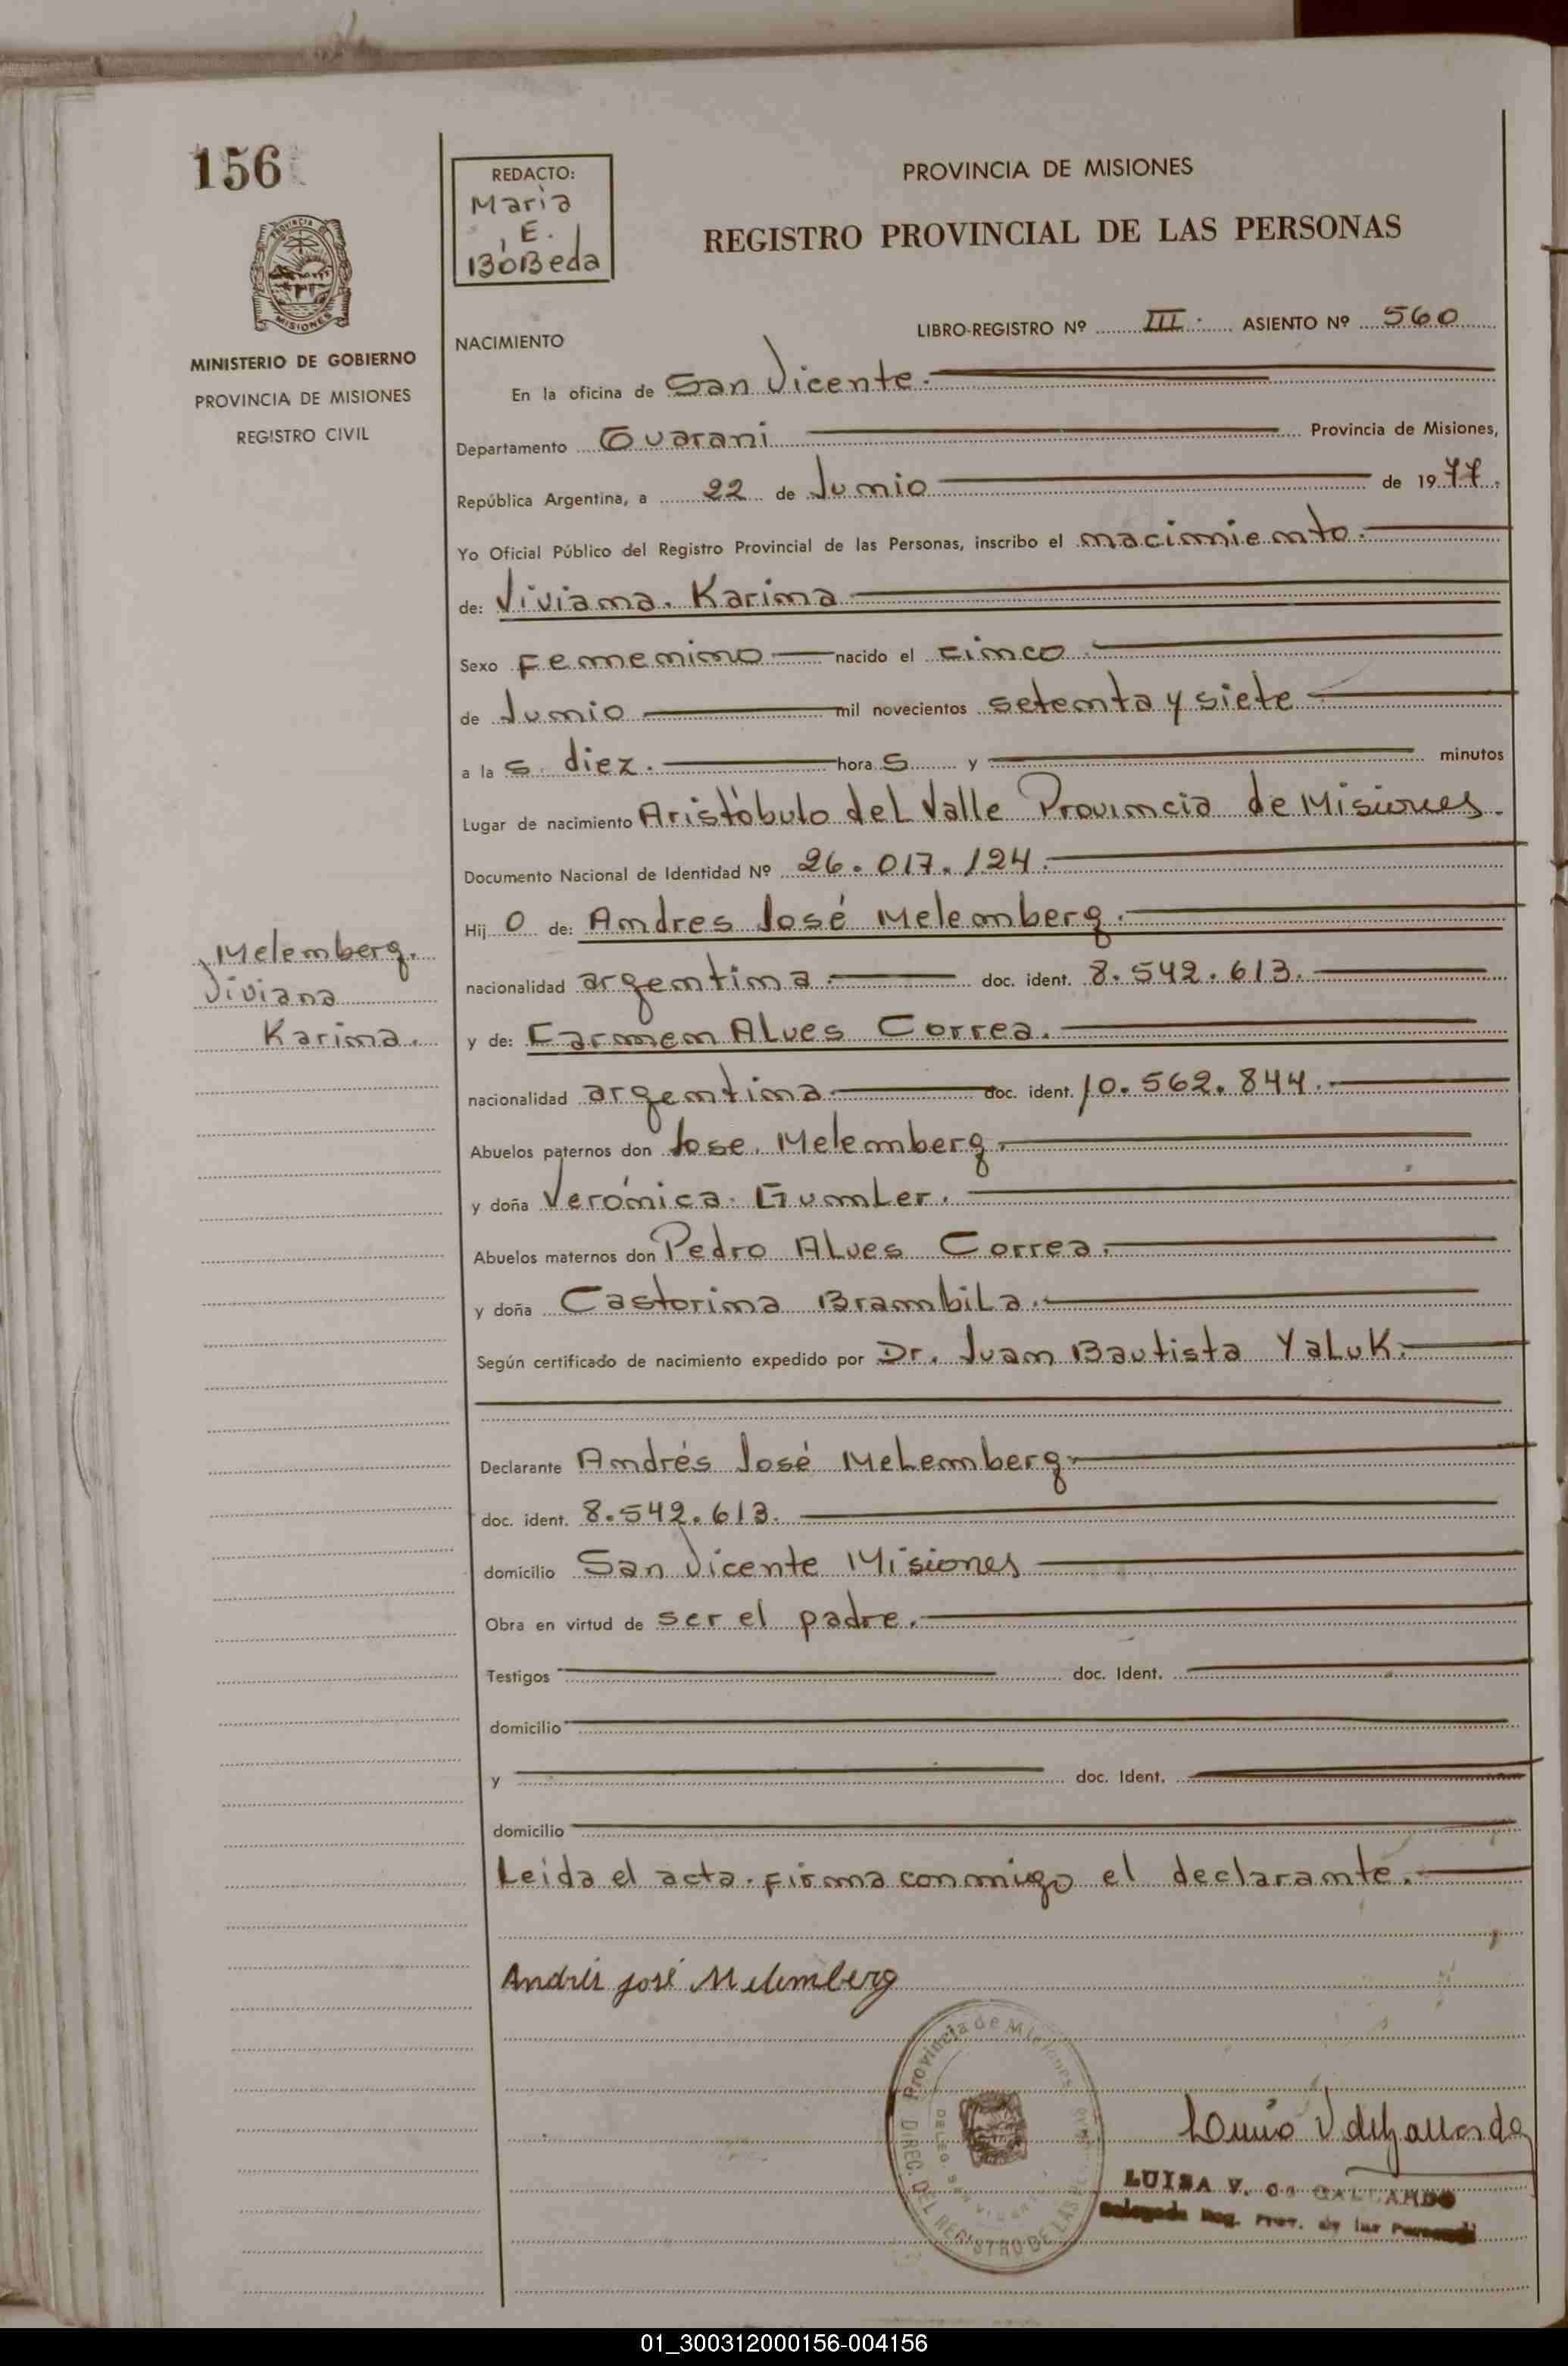 156
REDACTO:
Maria
E.
BóBeda
PROVINCIA DE MISIONES
REGISTRO PROVINCIAL DE LAS PERSONAS
PROVINCIA DE
MISIONES
MINISTERIO DE GOBIERNO
PROVINCIA DE MISIONES
REGISTRO CIVIL
LIBRO-REGISTRO Nº III. ASIENTO Nº 560
NACIMIENTO
En la oficina de San Vicente.
Departamento Guarani Provincia de Misiones,
República Argentina, a 22 de Junio de 1977.
Yo Oficial Público del Registro Provincial de las Personas, inscribo el nacimiento.
de: Viviana. Karina
Sexo Femenino nacido el cinco
de Junio mil novecientos setenta y siete
a la s. diez. hora s y minutos
Lugar de nacimiento Aristóbulo del Valle Provincia de Misiones.
Documento Nacional de Identidad Nº 26.017.124.
Hij o de: Andres José Melemberg.
nacionalidad argentina. doc. ident. 8.542.613.
y de: Carmen Alves Correa.
nacionalidad argentina doc. ident. 10.562.844.
Abuelos paternos don Jose. Melemberg.
y doña Verónica. Gumler.
Abuelos maternos don Pedro Alves Correa.
y doña Castorina Brambila.
Según certificado de nacimiento expedido por Dr. Juan Bautista Yaluk.
Declarante Andrés José Melemberg
doc. ident. 8.542.613.
domicilio San Vicente Misiones
Obra en virtud de ser el padre.
Testigos doc. Ident.
domicilio
y doc. Ident.
domicilio
Leida el acta. firma conmigo el declarante.
Melemberg.
Viviana
Karina.
Andrés José Melemberg
Provincia de Misiones
DIREC. DEL REGISTRO DE LAS
DELEG. SAN VICENTE
LUISA V. de GALLARDO
Delegada Reg. Prov. de las Personas
01_300312000156-004156